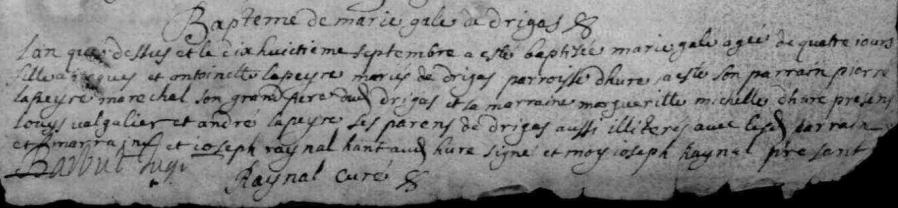 Bapteme de marie gale de drigas
Lan que dessus et le dix huictieme septembre a esté baptisée marie gale agee de quatre iours
fille a iaques et antoinette lapeyre maries de drigas parroisse dhure a este son parrain pierre
lapeyre marechal son grand pere dud drigas et sa marraine margueritte michelle dhure presens
louys valgalier et andre lapeyre ses parens de drigas aussi illiterés avec lesd parrain
et marraine et ioseph raynal hant aud hure signé et moy ioseph Raynal pre sant
Raynal cure